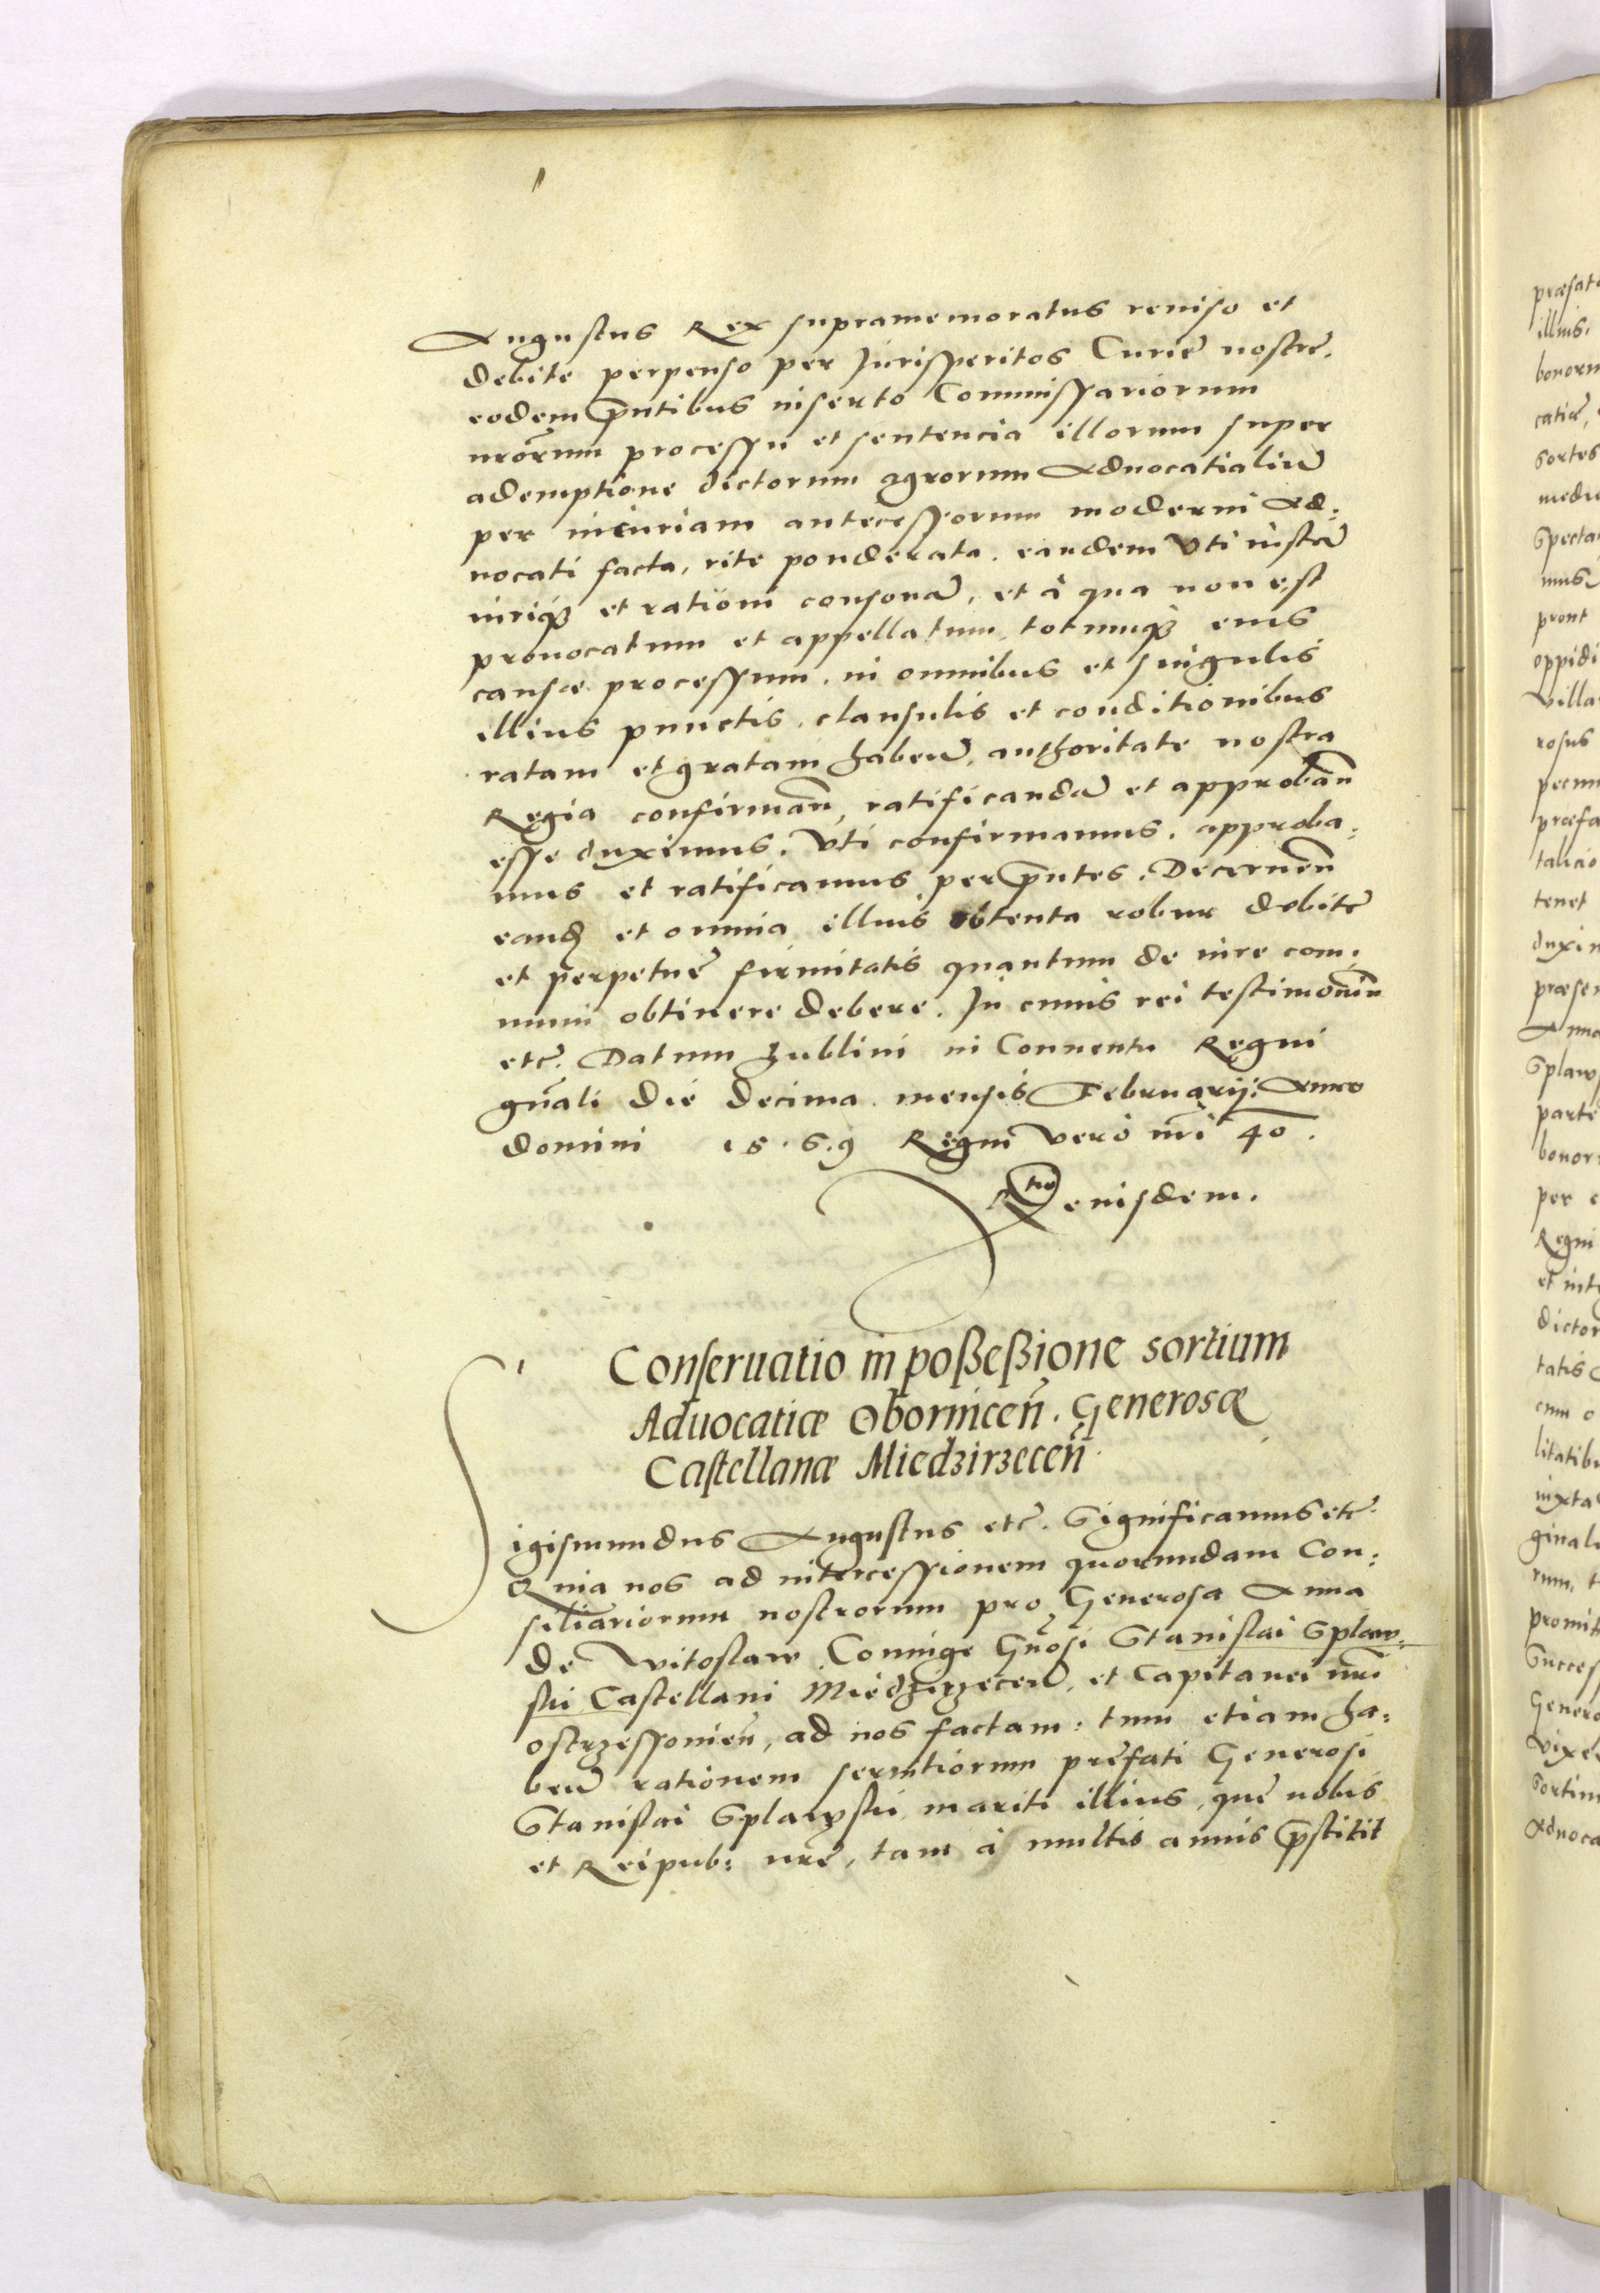 Augustus Rex supramemoratus reviso et
debite perpenso per Jurisperitos Curię nostrę.
eodem p̄ntibus inserto Commissariorum
nrōrum processu et sentencia illorum super
ademptione dictorum agrorum Aduocatialiū
per incuriam antecessorum moderni Ad:
uocati facta, rite ponderata. eandem vti iustā
iuriq₃ et rationi consonā, et à qua non est
prouocatum et appellatum, totumq₃ eius
causæ processum, in omnibus et singulis
illius punctis, clausulis et conditionibus
ratam et gratam habeñ, authoritate nostra
Regia confirmañ, ratificandā et approbañ
esse duximus. vti confirmamus, approba:
mus et ratificamus per p̄ntes. Decerneñ
eanđ et omnia illius obtenta robur debitę
et perpetuę firmitatis quantum de iure com:
muni obtinere debere. In cuius rei testimoniū
etc̄. Datum Lublini in Conuentu Regni
gn̄ali die decima mensis Februarij: Anno
domini 15.6.9 Regni vero nr̄i 40.
Rtio eiusdem.
Conseruatio in poßeßione sortium
Aduocatiæ Oborniceñ. Generosæ
Castellanæ Miedzirzeceñ
Sigismundus Augustus etc̄. Significamus etc̄.
Quia nos ad intercessionem quorundam Con:
siliariorum nostrorum pro Generosa Anna
de Witoslaw Coniuge Gn̄osi Stanislai Splaw:
ski Castellani Miedzirzeceñ, et Capitanei nr̄i
ostrzessowieñ, ad nos factam: tum etiam ha:
beñ rationem seruitiorum pręfati Generosi
Stanislai Splawski mariti illius, quę nobis
et Reipub: nrę, tam à multis annis p̄stitit
præfat
illius,
bonor
catiæ,
sortes
medi
Specta
mus
prout
oppidi
villa
rosus
pecun
præfa
talicio
tenet
duxi
præsen
Anna
Splaw
parte
bonor
per
Regni
et int
dictor
tatis
cum o
litatib
iuxta
ginal
rum,
promit
Succes
Genero
vixe
sortiu
Aduoca